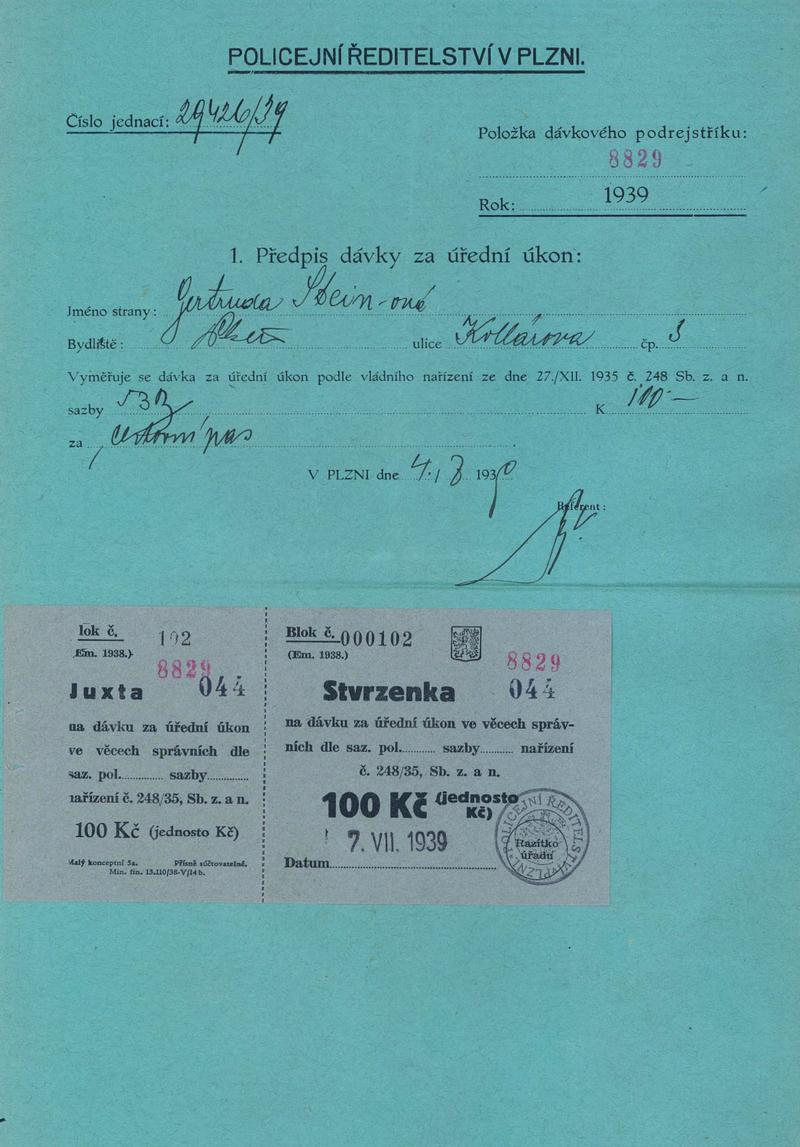 POLICEJNÍ ŘEDITELSTVÍ V PLZNI.
Číslo jednací: 29426/39
Položka dávkového podrejstříku:
8829
Rok: 1939
1. Předpis dávky za úřední úkon:
Jméno strany: Gertruda Stein-ová
Bydliště: ulice Kollárova čp. 3
Vyměřuje se dávka za úřední úkon podle vládního nařízení ze dne 27./XII. 1935 č. 248 Sb. z. a n.
sazby K 100.—
za cestovní pas
V PLZNI dne 4./7 1939
Referent:
lok č. 102
Em. 1938.)
8829
Juxta 044
na dávku za úřední úkon
ve věcech správních dle
saz. pol. sazby
nařízení č. 248/35, Sb. z. a n.
100 Kč (jednosto Kč)
Malý konceptní 5a. Přísně súčtovatelné.
Min. fin. 13.110/38-V/14 b.
Blok č. 000102
(Em. 1938.)
8829
Stvrzenka 044
na dávku za úřední úkon ve věcech správ-
ních dle saz. pol. sazby nařízení
č. 248/35, Sb. z. a n.
100 Kč (jednosto Kč)
7. VII. 1939
Datum
POLICEJNÍ ŘEDITELSTVÍ V PLZNI
Razítko
úřadu